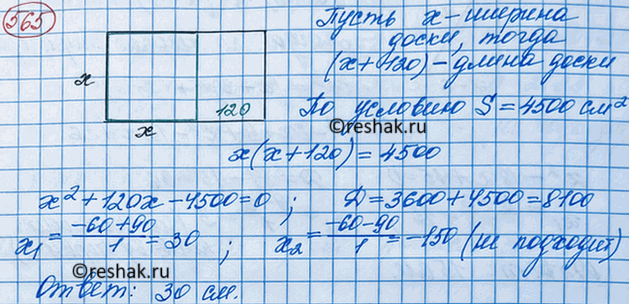 565
Пусть x - ширина
доски, тогда
(x+120) - длина доски
По условию S = 4500 см²
©reshak.ru
x
120
x
x(x+120) = 4500
x² + 120x - 4500 = 0 ; D = 3600 + 4500 = 8100
x₁ = (-60+90)/1 = 30 ; x₂ = (-60-90)/1 = -150 (не подходит)
©reshak.ru
Ответ: 30 см.